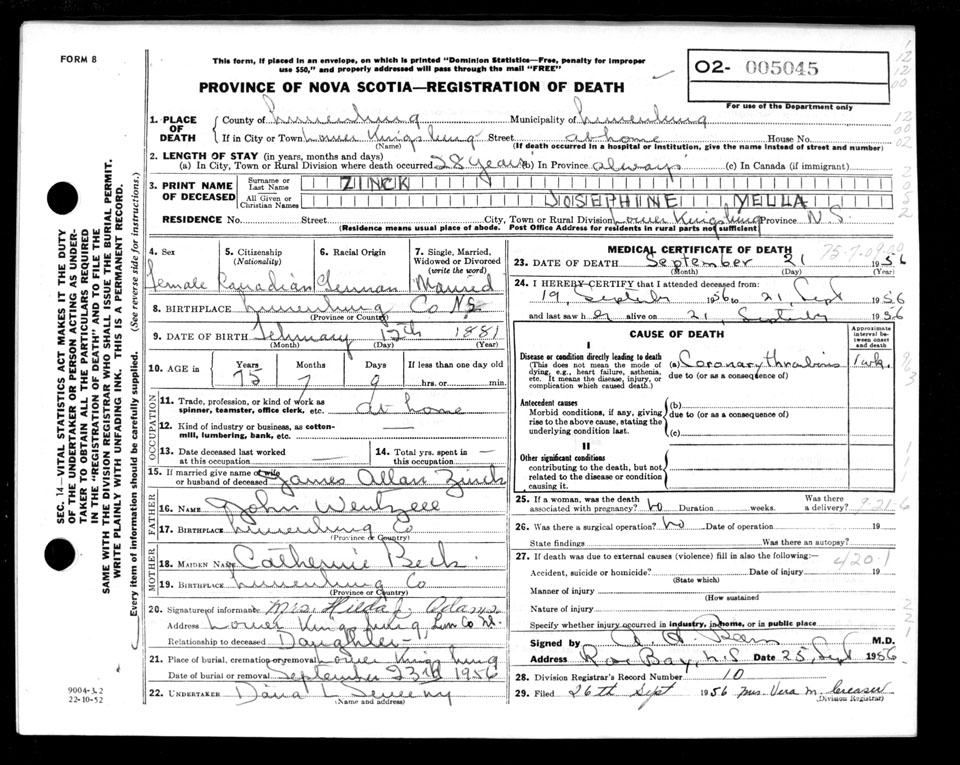 FORM 8
This form, if placed in an envelope, on which is printed "Dominion Statistics—Free, penalty for improper
use $50," and properly addressed will pass through the mail "FREE"
O2- 005045
For use of the Department only
PROVINCE OF NOVA SCOTIA—REGISTRATION OF DEATH
1. PLACE OF DEATH
County of Lunenburg Municipality of Lunenburg
If in City or Town Lower Kingsburg Street at home House No.
(Name) (If death occurred in a hospital or institution, give the name instead of street and number)
2. LENGTH OF STAY (in years, months and days)
(a) In City, Town or Rural Division where death occurred 28 years (b) In Province always (c) In Canada (if immigrant)
3. PRINT NAME OF DECEASED
Surname or Last Name ZINCK
All Given or Christian Names JOSEPHINE VELLA
RESIDENCE No. Street City, Town or Rural Division Lower Kingsburg Province N S
(Residence means usual place of abode. Post Office Address for residents in rural parts not sufficient)
4. Sex 5. Citizenship (Nationality) 6. Racial Origin 7. Single, Married, Widowed or Divorced (write the word)
female Canadian German Married
8. BIRTHPLACE Lunenburg Co N.S.
(Province or Country)
9. DATE OF BIRTH February 12th 1881
(Month) (Day) (Year)
10. AGE in Years Months Days If less than one day old
75 7 9 hrs. or min.
OCCUPATION
11. Trade, profession, or kind of work as spinner, teamster, office clerk, etc. at home
12. Kind of industry or business, as cotton-mill, lumbering, bank, etc. —
13. Date deceased last worked at this occupation — 14. Total yrs. spent in this occupation —
15. If married give name of wife or husband of deceased James Allan Zinck
FATHER
16. NAME John Wentzell
17. BIRTHPLACE Lunenburg Co
(Province or Country)
MOTHER
18. MAIDEN NAME Catherine Beck
19. BIRTHPLACE Lunenburg Co
(Province or Country)
20. Signature of informant Mrs. Hilda J. Adams
Address Lower Kingsburg Lun Co N.S.
Relationship to deceased Daughter
21. Place of burial, cremation or removal Lower Kingsburg
Date of burial or removal September 23rd 1956
22. UNDERTAKER Dana L Sweeny
(Name and address)
9004-3.2
22-10-52
SEC. 14—VITAL STATISTICS ACT MAKES IT THE DUTY
OF THE UNDERTAKER OR PERSON ACTING AS UNDER-
TAKER TO OBTAIN ALL THE PARTICULARS REQUIRED
IN THE "REGISTRATION OF DEATH" AND TO FILE THE
SAME WITH THE DIVISION REGISTRAR WHO SHALL ISSUE THE BURIAL PERMIT.
WRITE PLAINLY WITH UNFADING INK. THIS IS A PERMANENT RECORD.
Every item of information should be carefully supplied. (See reverse side for instructions.)
MEDICAL CERTIFICATE OF DEATH
23. DATE OF DEATH September 21 1956
(Month) (Day) (Year)
24. I HEREBY CERTIFY that I attended deceased from:
19, September 1956 to 21, Sept 1956
and last saw her alive on 21, September 1956
CAUSE OF DEATH
Approximate interval between onset and death
I
Disease or condition directly leading to death
(This does not mean the mode of dying, e.g., heart failure, asthenia, etc. It means the disease, injury, or complication which caused death.)
(a) Coronary thrombosis 1 wk.
due to (or as a consequence of)
Antecedent causes
Morbid conditions, if any, giving rise to the above cause, stating the underlying condition last.
(b)
due to (or as a consequence of)
(c)
II
Other significant conditions
contributing to the death, but not related to the disease or condition causing it.
25. If a woman, was the death associated with pregnancy? No Duration weeks. Was there a delivery?
9-21-6
26. Was there a surgical operation? No Date of operation 19
State findings Was there an autopsy?
27. If death was due to external causes (violence) fill in also the following:—
420.1
Accident, suicide or homicide? Date of injury 19
(State which)
Manner of injury
(How sustained)
Nature of injury
Specify whether injury occurred in industry, in home, or in public place
Signed by M.D.
Address Rose Bay, N.S Date 25, Sept 1956.
28. Division Registrar's Record Number 10
29. Filed 26th Sept 1956 Mrs. Vera M. Creaser
(Division Registrar)